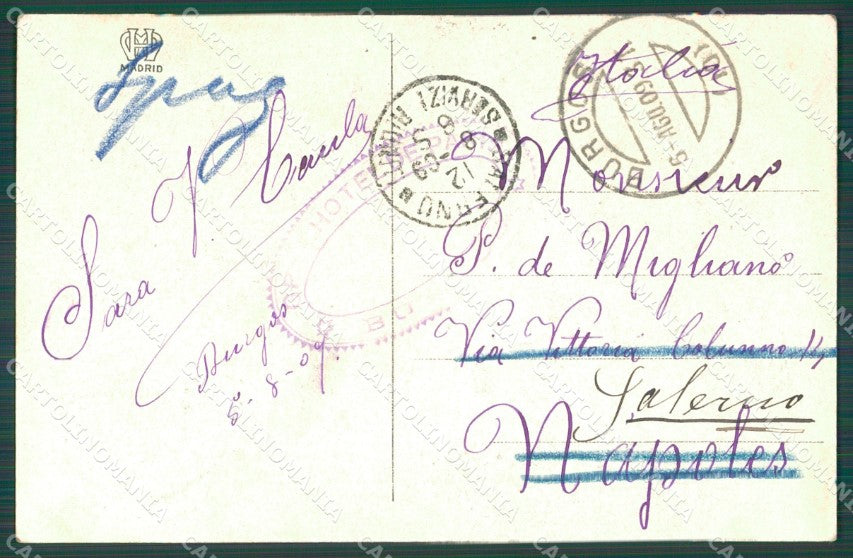 MADRID
Spag
Sara J Caula
Burgos
5-8-09.
HOTEL
BU
SALERNO
SERVIZI RIUNITI
12-8 09
BURGOS
5 AGO 09
Italia
Monsieur
P. de Migliano
Via Vittoria Colunno 14
Salerno
Napoles
CARTOLINOMANIA